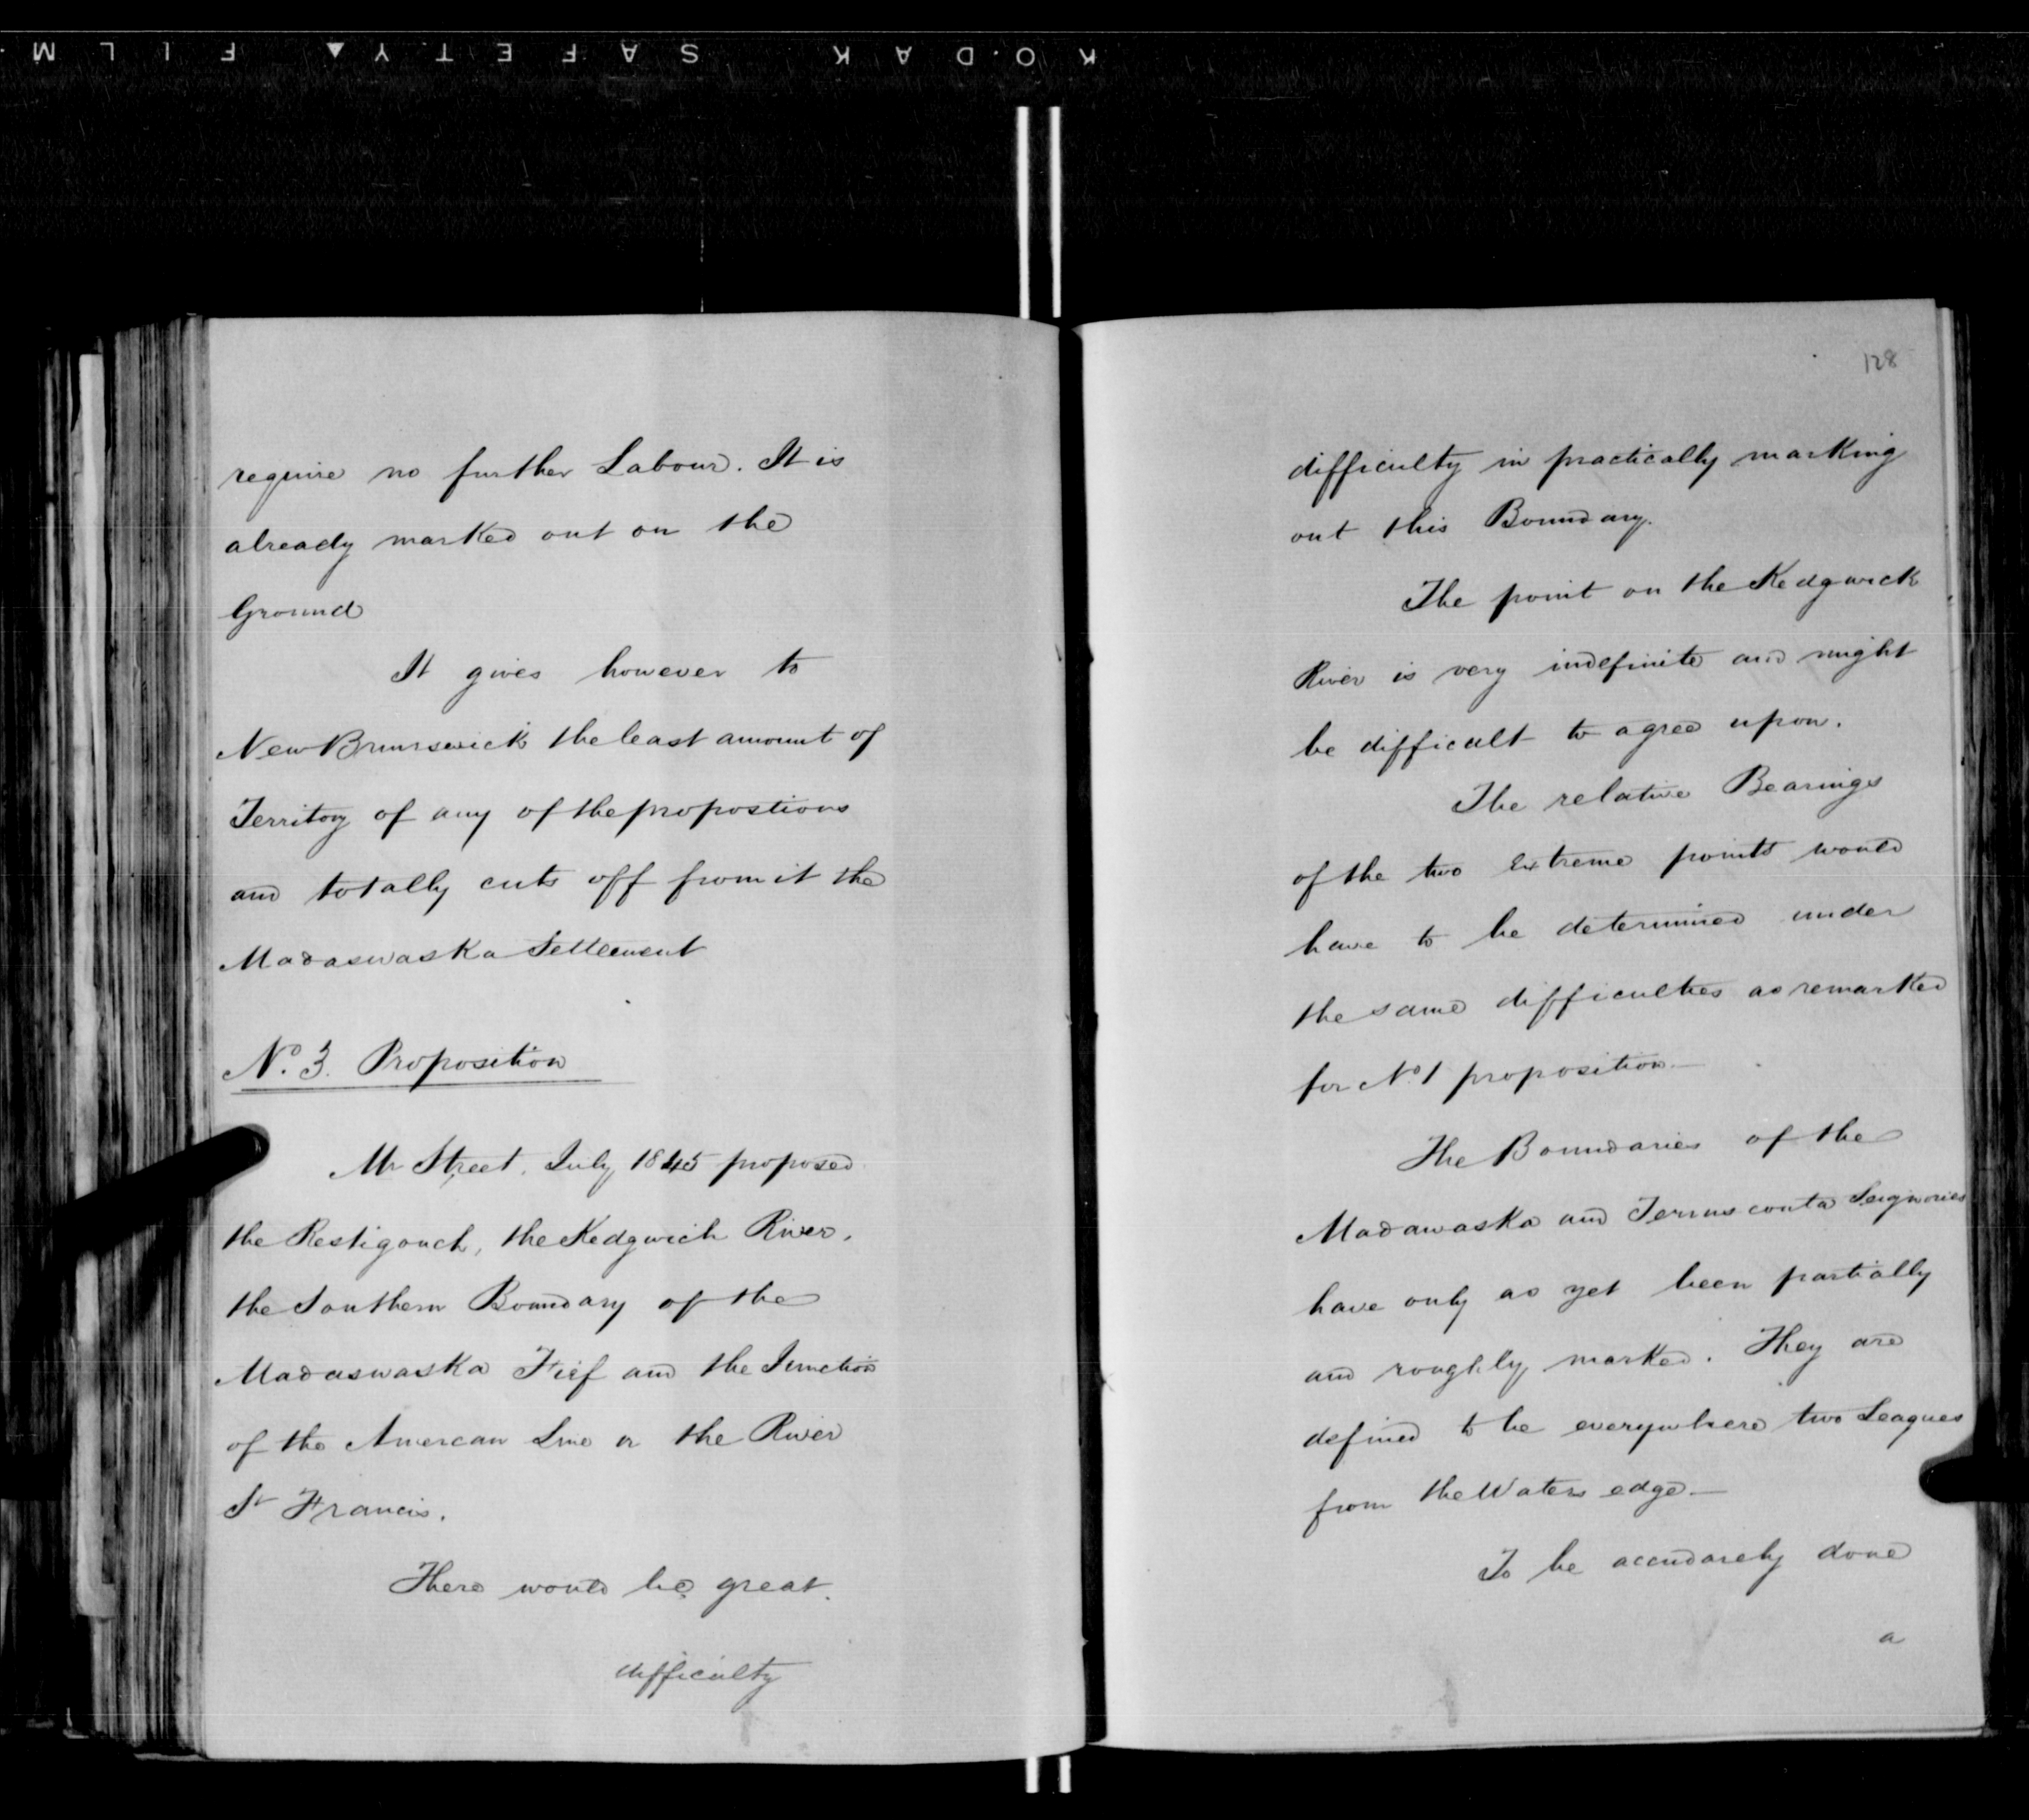 KODAK SAFETY FILM
require no further Labour. It is
already marked out on the
Ground
It gives however to
New Brunswick the least amount of
Territory of any of the propostions
and totally cuts off from it the
Madaswaska Settlement
No. 3. Proposition
Mr Street, July 1845 proposed
the Restigouch, the Kedgwich River,
the Southern Boundary of the
Madaswaska Fief and the Junction
of the Amercan Line or the River
St Francis.
There would be great.
difficulty
128
difficulty in practically marking
out this Boundary.
The point on the Kedgwick
River is very indefinite and might
be difficult to agree upon.
The relative Bearings
of the two Extreme points would
have to be determined under
the same difficulties as remarked
for No 1 proposition—
The Boundaries of the
Madawaska and Temisconta Seignories
have only as yet been partially
and roughly marked. They are
defined to be everywhere two Leagues
from the Waters edge—
To be accudarely done
a